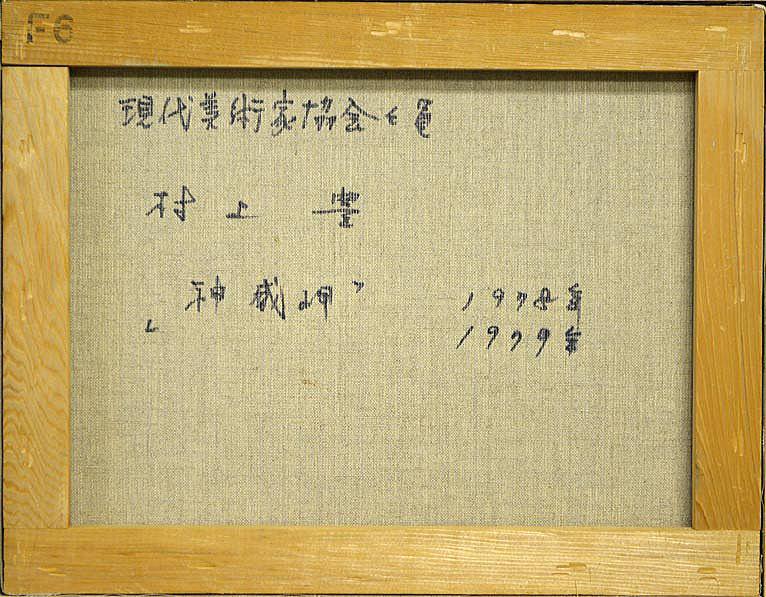 F6
現代美術家協会会員
村上 豊
"神威岬"
1978年
1979年